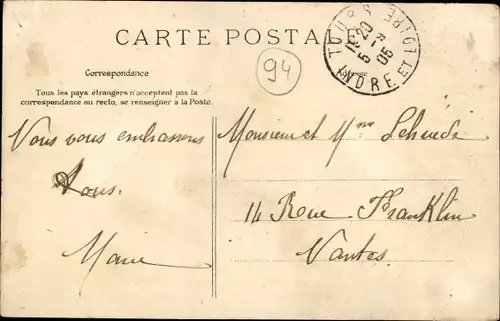 CARTE POSTALE
TOURS
INDRE ET LOIRE
5 - 9
05
94
Correspondance
Adresse
Tous les pays étrangers n'acceptent pas la
correspondance au recto, se renseigner à la Poste.
Vous vous embrassons
tous.
Marie
Monsieur et Mme
14 Rue Franklin
Nantes